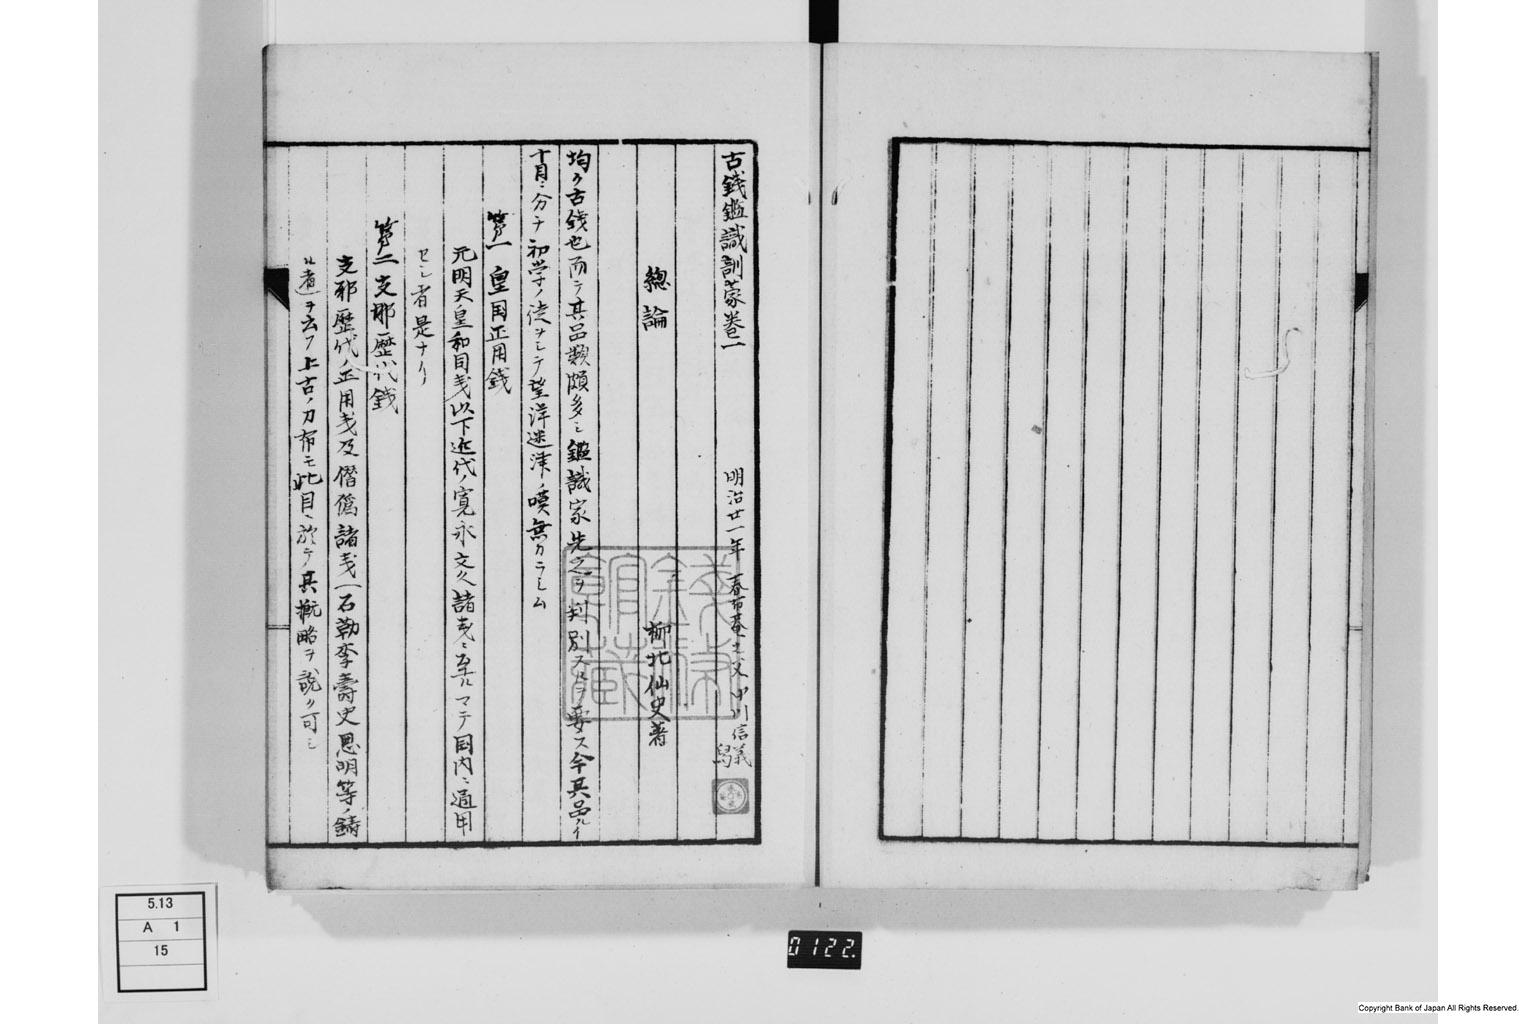 古錢鑑識訓蒙巻一
明治廿一年 春帝菴主父 中川信義
寫
總論
柳北仙史著
均ク古錢也而テ其品類頗多シ鑑識家先之ヲ判別スルヲ要ス今其品ルイ
十目ニ分チ初学ノ徒ヲシテ望洋迷津ノ嘆無カラシム
第一 皇国正用錢
元明天皇和同戔以下近代ノ寛永文久諸戔ニ至ルマテ国内ニ通用
セシ者是ナリ
第二 支那歴代錢
支那歴代ノ正用戔及僭偽諸戔(石勒李壽史思明等ノ鋳
ル者ヲ云フ上古ノ刀布モ此目ニ於テ其概略ヲ説ク可シ
5.13
A 1
15
0122.
Copyright Bank of Japan All Rights Reserved.